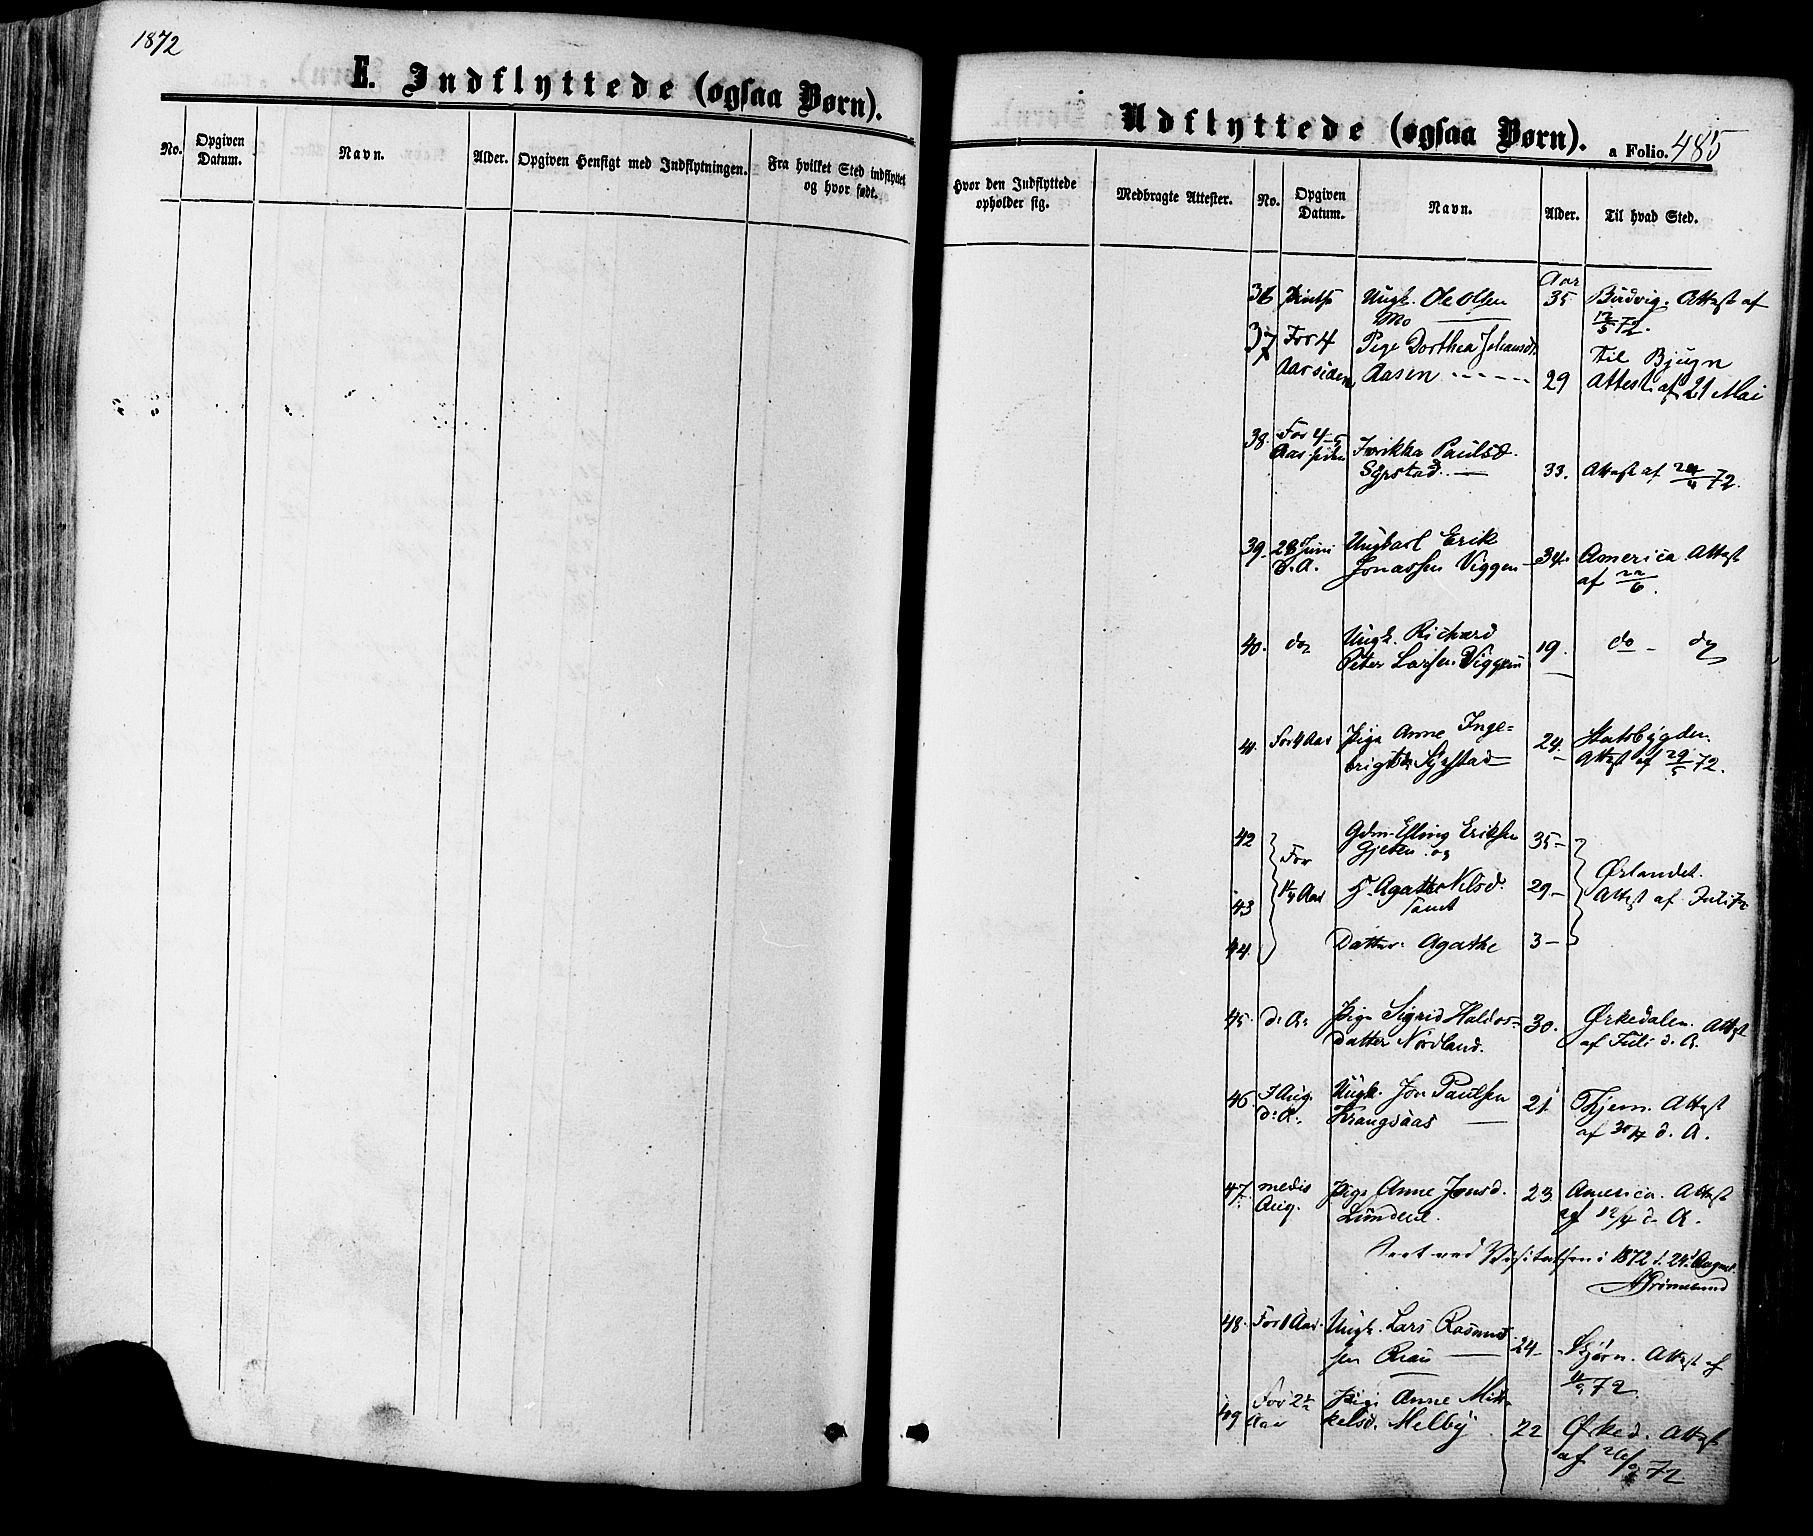 1872
E. Indflyttede (ogsaa Børn).
No. Opgiven Datum. Navn. Alder. Opgiven Hensigt med Indflytningen. Fra hvilket Sted indflyttet og hvor født.
Udflyttede (ogsaa Børn). a Folio. 485
Hvor den Indflyttede opholder sig. Medbragte Attester. No. Opgiven Datum. Navn. Alder. Til hvad Sted.
Aar
36 Ungk. Ole Olsen 35 Attest af
Mo 12/5 72.
37 For 4 Pige Dorthea Johansdt. Til Bjugn
Aar siden Aasen 29 Attest af 21 Mai
38. For 4-5
Aar siden Paulsd.
Syrstad. 33. Attest af 72.
39. 28 Juni Ungkarl Erik
d. A. Jonassen Viggen 34. America Attest
af 22/6.
40. do Ungk. Richard
Peter Larsen Viggen 19. do - do
41. For 4 Aar Pige Anne Inge-
brigtsd. 24. Stadsbygden.
Attest af 29/5 72.
42 Gdm. Eriksen 35-
Gjeten og
For Ørlandet.
43 Aar H. Agathe Nilsd. 29- Attest af Juli 72
samt
44. Datter Agathe 3-
45. d. A. Pige Sigrid Haldors- 30. Ørkedalen. Attest
datter Nordland. af Juli d. A.
46 Aug. Ungk. Jon Paulsen 21.
d. A. Krangsaas Attest
af 30/7 d. A.
47. medio Pige Anne Jonsd. 23. America. Attest
Aug. Lundene. af 12/4 d. A.
Seet ved Visitatsen i 1872 d. 24. August.
48. For 1 Aar Ungk. Lars Rasmus-
sen 24- Skjørn. Attest af
72.
49 For 2½ Pige Anne Mik-
Aar kelsd. Melby 22 Ørked. Attest
af 72